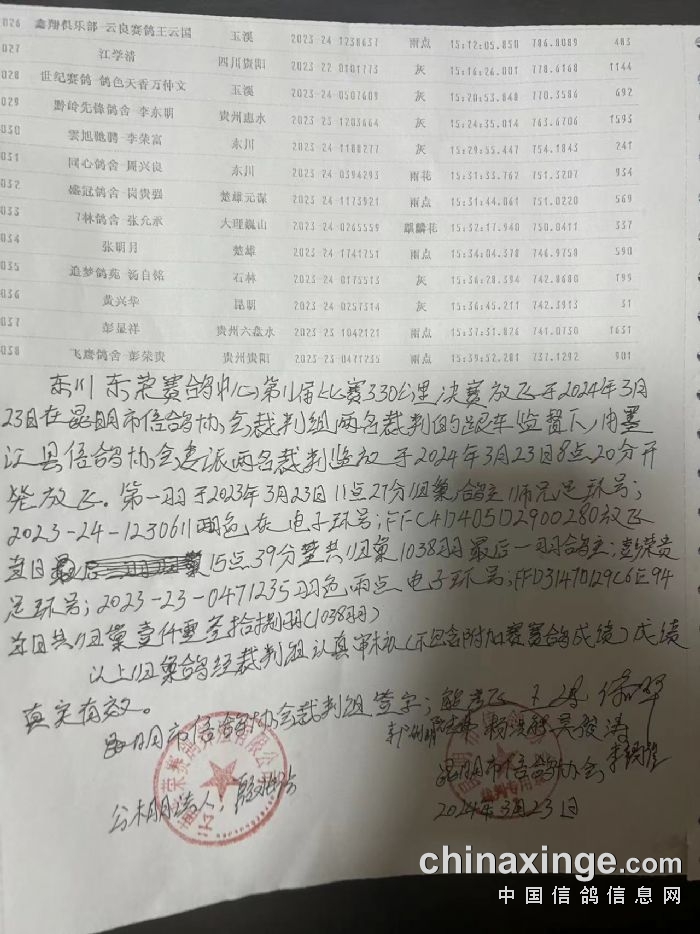 026 鑫翔俱乐部-云良赛鸽王云国 玉溪 2023-24-1238637 雨点 15:12:05.850 786.8089 483
027 江学清 四川贵阳 2023-22-0101773 灰 15:16:26.001 778.6168 1144
028 世纪赛鸽-鸽色天香万仲文 玉溪 2023-24-0507609 灰 15:20:53.848 770.3586 692
029 黔岭先锋鸽舍-李东明 贵州惠水 2023-23-1203664 灰 15:24:35.014 763.6706 1593
030 雲旭驰骋-李荣富 东川 2023-24-1188277 灰 15:29:55.447 754.1843 241
031 同心鸽舍-周兴良 东川 2023-24-0394293 雨花 15:31:33.762 751.3207 934
032 盛冠鸽舍-岗贵强 楚雄元谋 2023-24-1173921 雨点 15:31:44.061 751.0220 569
033 7林鸽舍-张允承 大理巍山 2023-24-0265559 麒麟花 15:32:17.940 750.0411 337
034 张明月 楚雄 2023-24-1741751 雨点 15:34:04.378 746.9758 590
035 追梦鸽苑-汤自铭 石林 2023-24-0175513 灰 15:36:28.394 742.8680 199
036 黄兴华 昆明 2023-24-0257314 灰 15:36:45.211 742.3913 31
037 彭显祥 贵州六盘水 2023-23-1042121 雨点 15:37:31.826 741.0730 1631
038 飞鹰鸽舍-彭荣贵 贵州贵阳 2023-23-0471235 雨点 15:39:52.281 737.1292 901
东川东荣赛鸽中心第11届比赛330公里决赛放飞于2024年3月
23日在昆明市信鸽协会裁判组两名裁判的跟车监督下,由墨
江县信鸽协会委派两名裁判监放于2024年3月23日8点20分开
笼放飞。第一羽于2023年3月23日11点27分归巢,鸽主;师兄足环号;
2023-24-1230611羽色灰电子环号;FFC41D405D2900280放飞
当日最后15点39分整共归巢1038羽最后一羽鸽主;彭荣贵
足环号;2023-23-0471235羽色雨点电子环号;FFD3147D129C6E94
当日共归巢壹仟零叁拾捌羽(1038羽)
以上归巢鸽经裁判组认真审核(不包含附加赛赛鸽成绩)成绩
真实有效。
昆明市信鸽协会裁判组签字;
昆明市信鸽协会
公棚负责人;
2024年3月23日
chinaxinge.com
中国信鸽信息网